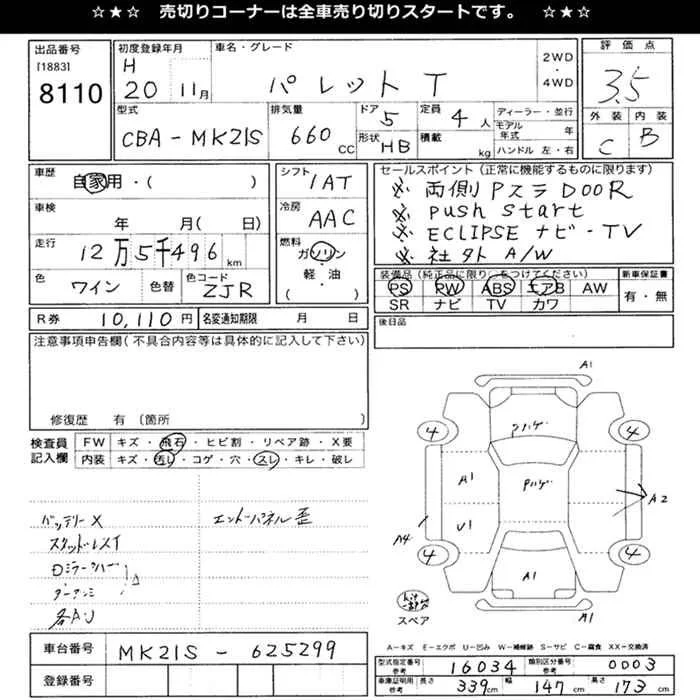 ☆★☆ 売切りコーナーは全車売り切りスタートです。 ☆★☆
出品番号
[1883]
8110
初度登録年月
H
20 11月
車名・グレード
パレット T
2WD
・
4WD
評価点
3.5
外装 内装
C B
型式
CBA-MK21S
排気量
660 CC
ドア 5
形状 HB
定員 4 人
積載 kg
ディーラー・並行
モデル年式 年
ハンドル 左・右
車歴
自家用・( )
車検
年 月( 日)
走行
12万5千496 km
色
ワイン
色替
色コード
ZJR
シフト
IAT
冷房
AAC
燃料
ガソリン
・
軽・油
( )
セールスポイント(正常に機能するものに限ります)
※ 両側PスラDOOR
※ push start
※ ECLIPSE ナビ・TV
※ 社外 A/W
装備品(純正品に限り○をつけてください)
PS PW ABS エアB AW
SR ナビ TV カワ
新車保証書
有・無
R券 10,110 円 名変通知期限 月 日
後日品
注意事項申告欄(不具合内容等は具体的に記入して下さい)
修復歴 有 〔箇所 〕
検査員
記入欄
FW キズ・飛石・ヒビ割・リペア跡・X要
内装 キズ・汚レ・コゲ・穴・スレ・キレ・破レ
バッテリーX
スタッドレスT
各AU
エンドパネル歪
A1
4
4
Pハゲ
A1
Pハゲ
A2
U1
A4
4
4
A1
A1
スペア
A-キズ E-エクボ U-凹み W-補修跡 S-サビ C-腐食 XX-交換済
車台番号 MK21S - 625299
登録番号
型式指定番号
参考
16034
類別区分番号
参考
0003
車庫証明用
参考
長さ 339 cm 幅 147 cm 高さ 173 cm